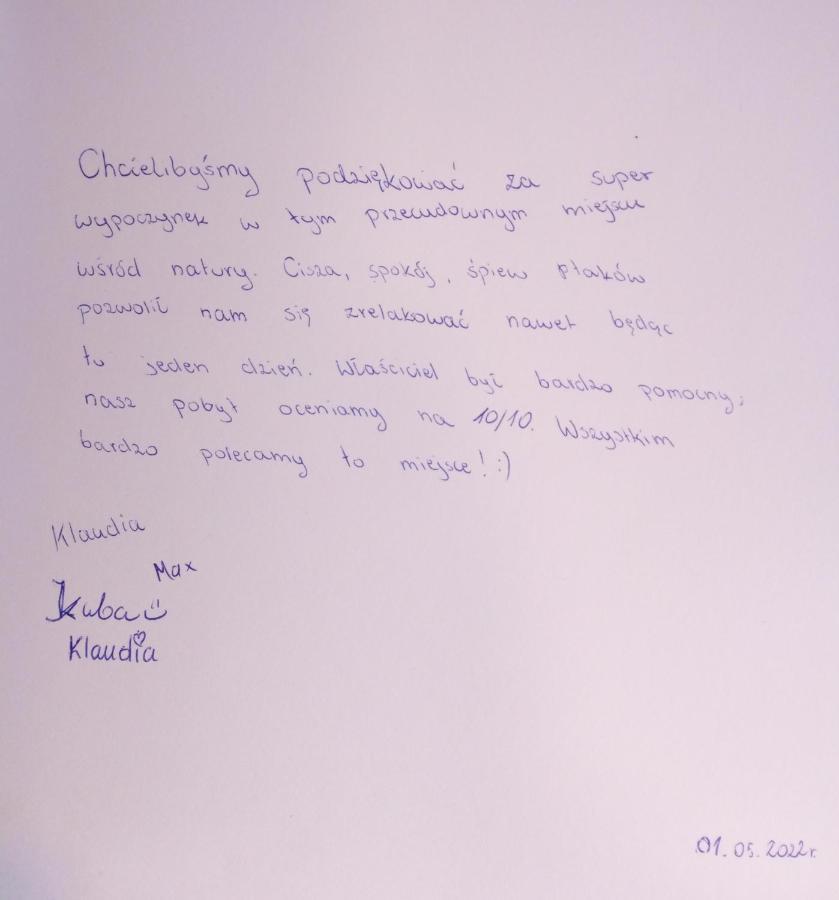 Chcielibyśmy podziękować za super
wypoczynek w tym przecudownym miejscu
wśród natury. Cisza, spokój, śpiew ptaków
pozwolił nam się zrelakować nawet będąc
tu jeden dzień. Właściciel był bardzo pomocny,
nasz pobyt oceniamy na 10/10. Wszystkim
bardzo polecamy to miejsce! :)
Klaudia
Max
Kuba
Klaudia
01.05.2022r.